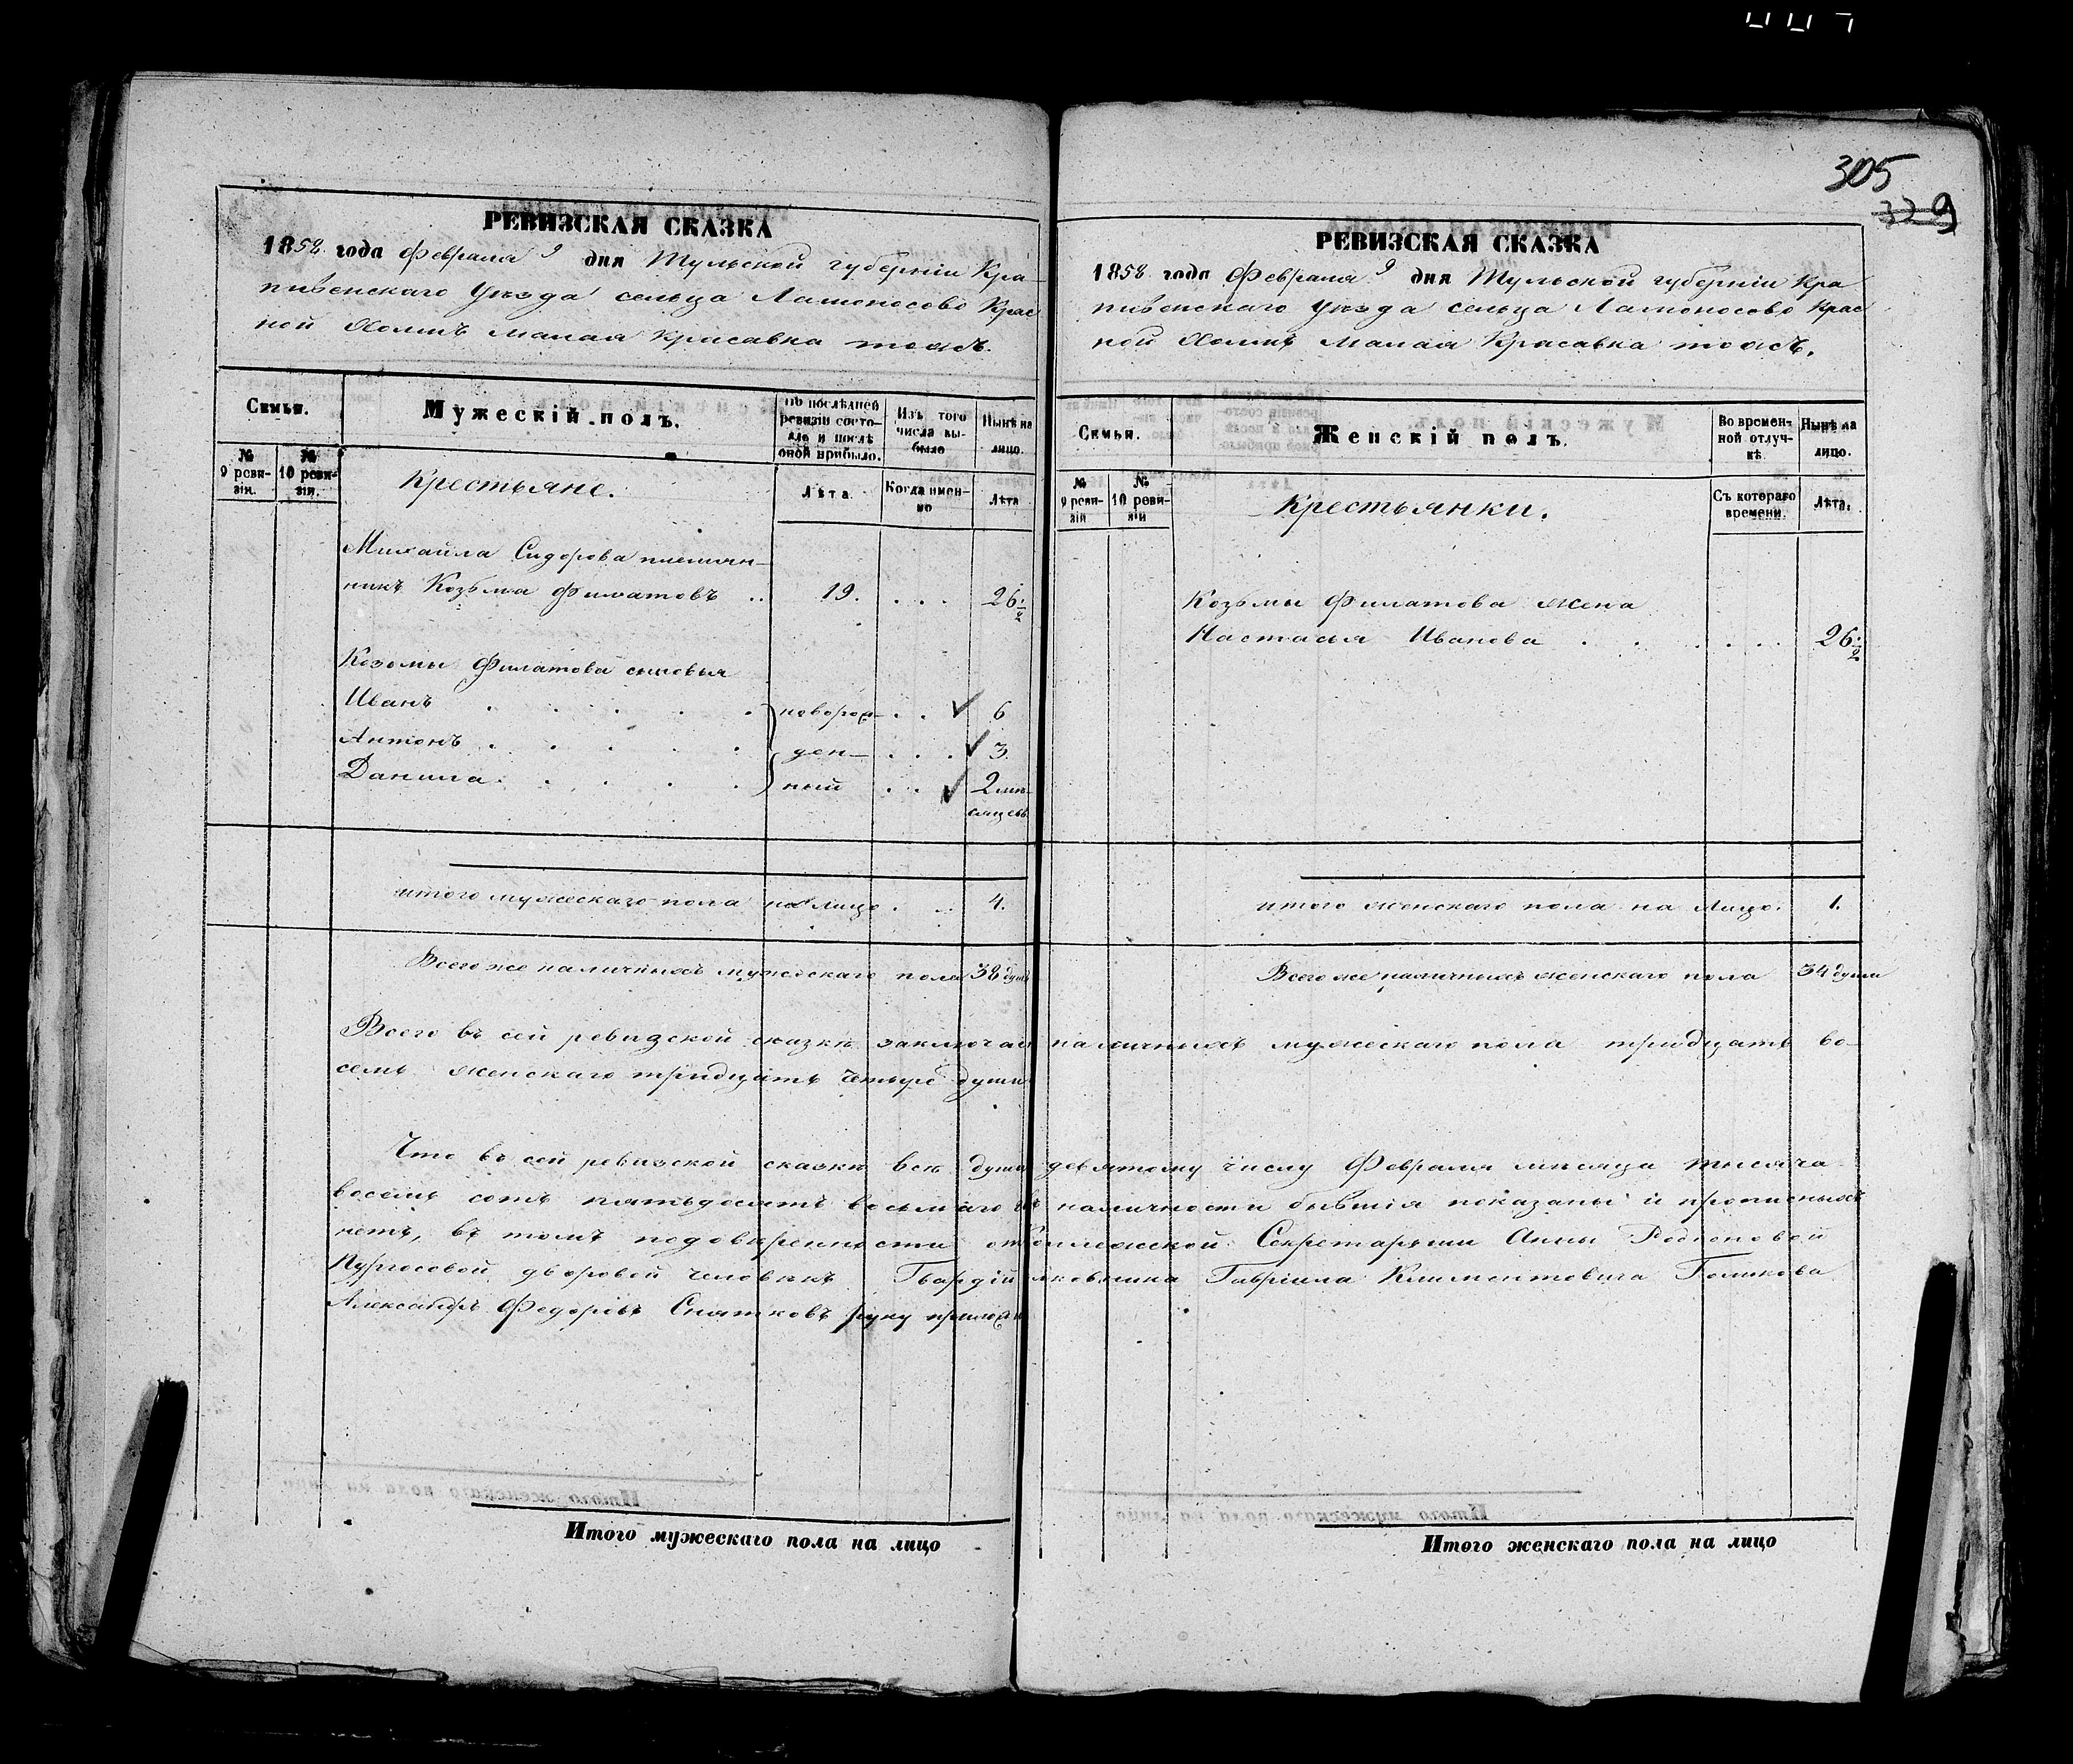 305
329
РЕВИЗСКАЯ СКАЗКА
1858 года Февраля 9 дня Тульской губерніи Кра
пивенскаго уѣзда сельца Ламоносово Крас
ной Холмъ малая Красавка тожъ.
Семьи.
Мужескій полъ.
По послѣдней ревизіи состояло и послѣ оной прибыло.
Изъ того числа выбыло
Нынѣ на лицо.
№ 9 ревизіи.
№ 10 ревизіи.
Крестьяне.
Лѣта.
Когда именно
Лѣта
Михайла Сидорова племян-
никъ Козьма Филатовъ .. 19. . . . 26 1/2
Козьмы Филатова сыновья
Иванъ . . . . . новорож- . . ✓ 6
Антонъ . . . . . ден- . . . ✓ 3.
Данила . . . . . ный . . ✓ 2 мѣ-
сяцевъ
итого мужескаго пола на лицо . . 4.
Всего же наличныхъ мужескаго пола 38 душъ
РЕВИЗСКАЯ СКАЗКА
1858 года Февраля 9 дня Тульской губерніи Кра
пивенскаго уѣзда сельца Ламоносово Крас
ной Холмъ Малая Красавка тожъ.
Семьи.
Женскій полъ.
Во временной отлучкѣ.
Нынѣ на лицо.
№ 9 ревизіи
№ 10 ревизіи
Крестьянки.
Съ котораго времени.
Лѣта.
Козьмы Филатова жена
Настасья Иванова . . . . . . 26 1/2
итого женскаго пола на лицо. 1.
Всего же наличныхъ женскаго пола 34 души
Всего въ сей ревизской сказкѣ заключается наличныхъ мужескаго пола тридцать во-
семь женскаго тридцать четыре души
Что въ сей ревизской сказкѣ всѣ души девятому числу Февраля мѣсяца тысяча
восемь сотъ пятьдесятъ восьмаго въ наличности бывшія показаны и прописныхъ
нетъ, въ томъ по доверенности Секретарши Анны Родионовой
дворовой человѣкъ Гвардіи Гавріила Климентовича Голикова
Александръ Федоровъ руку приложилъ
Итого мужескаго пола на лицо
Итого женскаго пола на лицо